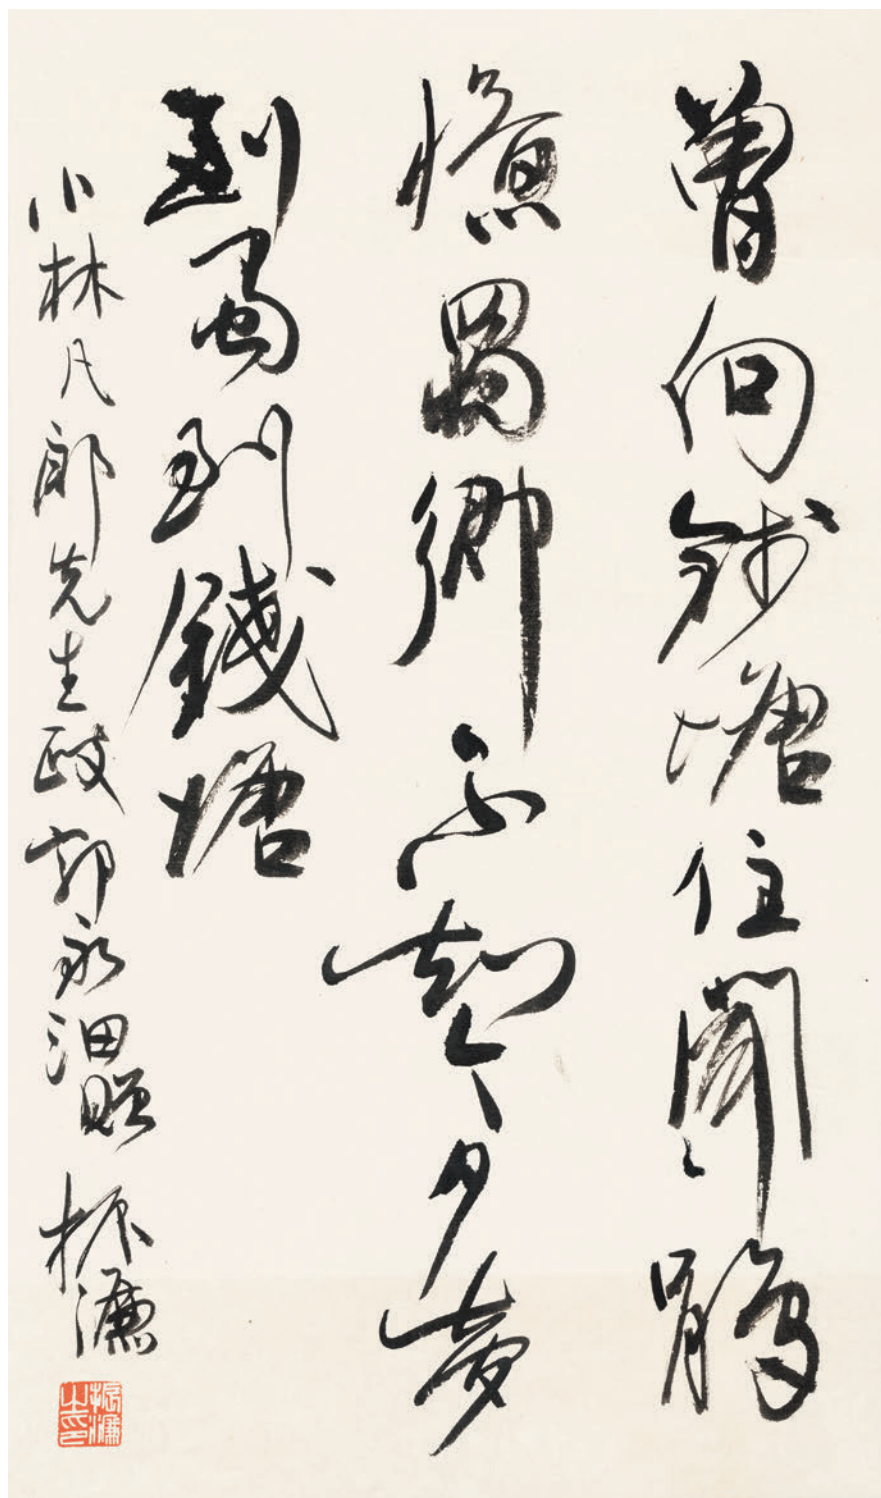 曾向錢塘住聞鵑
憶蜀鄉不知今夕夢
到蜀到錢塘
小林凡郎先生政 郭永 贈 振濂
振濂之印